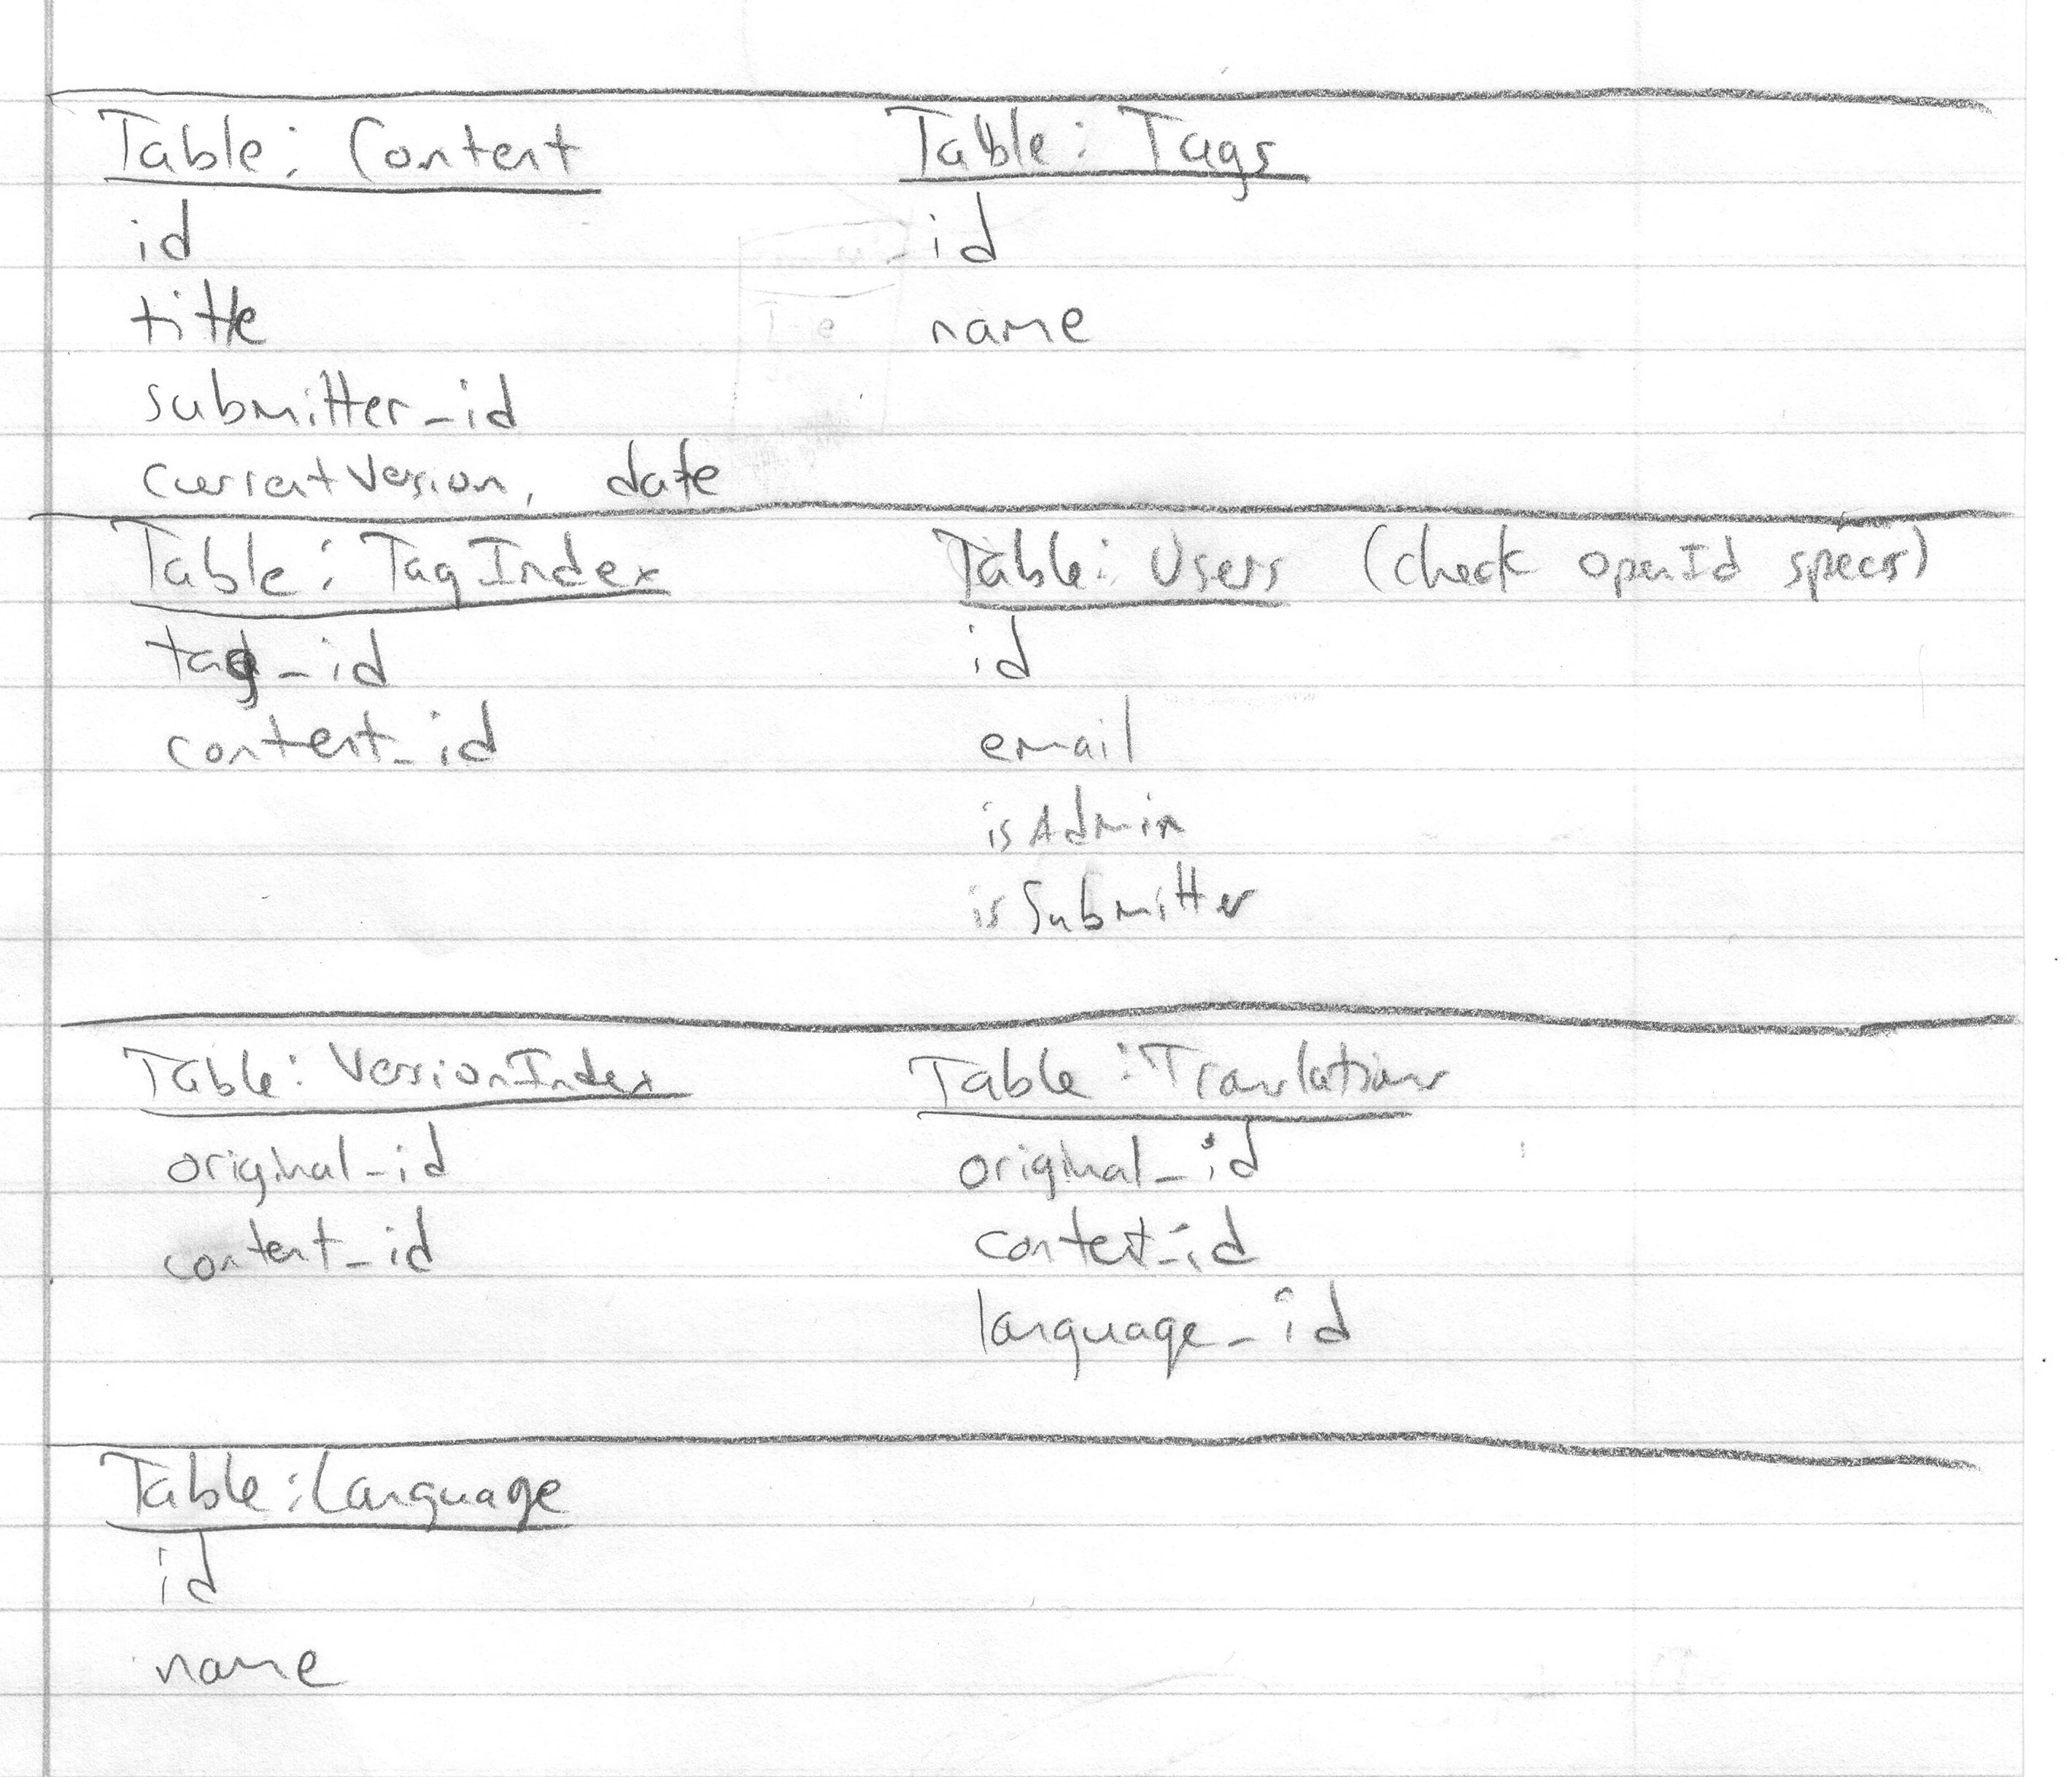 Table: Content
id
title
submitter_id
currentVersion, date
Table: Tags
id
name
Table: TagIndex
tag_id
content_id
Table: Users (check openId specs)
id
email
isAdmin
isSubmitter
Table: VersionIndex
original_id
content_id
Table: Translations
original_id
content_id
language_id
Table: Language
id
name